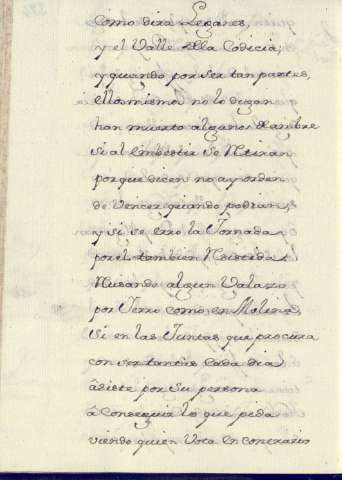 Como dira Leganes,
y el Valle della Codicia,
y quando por ser tan partes,
ellos mismos no lo digan
han muerto algunos de ambre
si al embestir se retiran
porque dicen no ay orden
de vencer quando podian,
y si se erro la Jornada
por el tambien
Rusando algun Valazo
por Yerro como en Molina,
Si en las Juntas que procura
con ser tantas cada dia
âsiste por su persona
â Conseguir lo que pida
viendo quien Vota en contrario